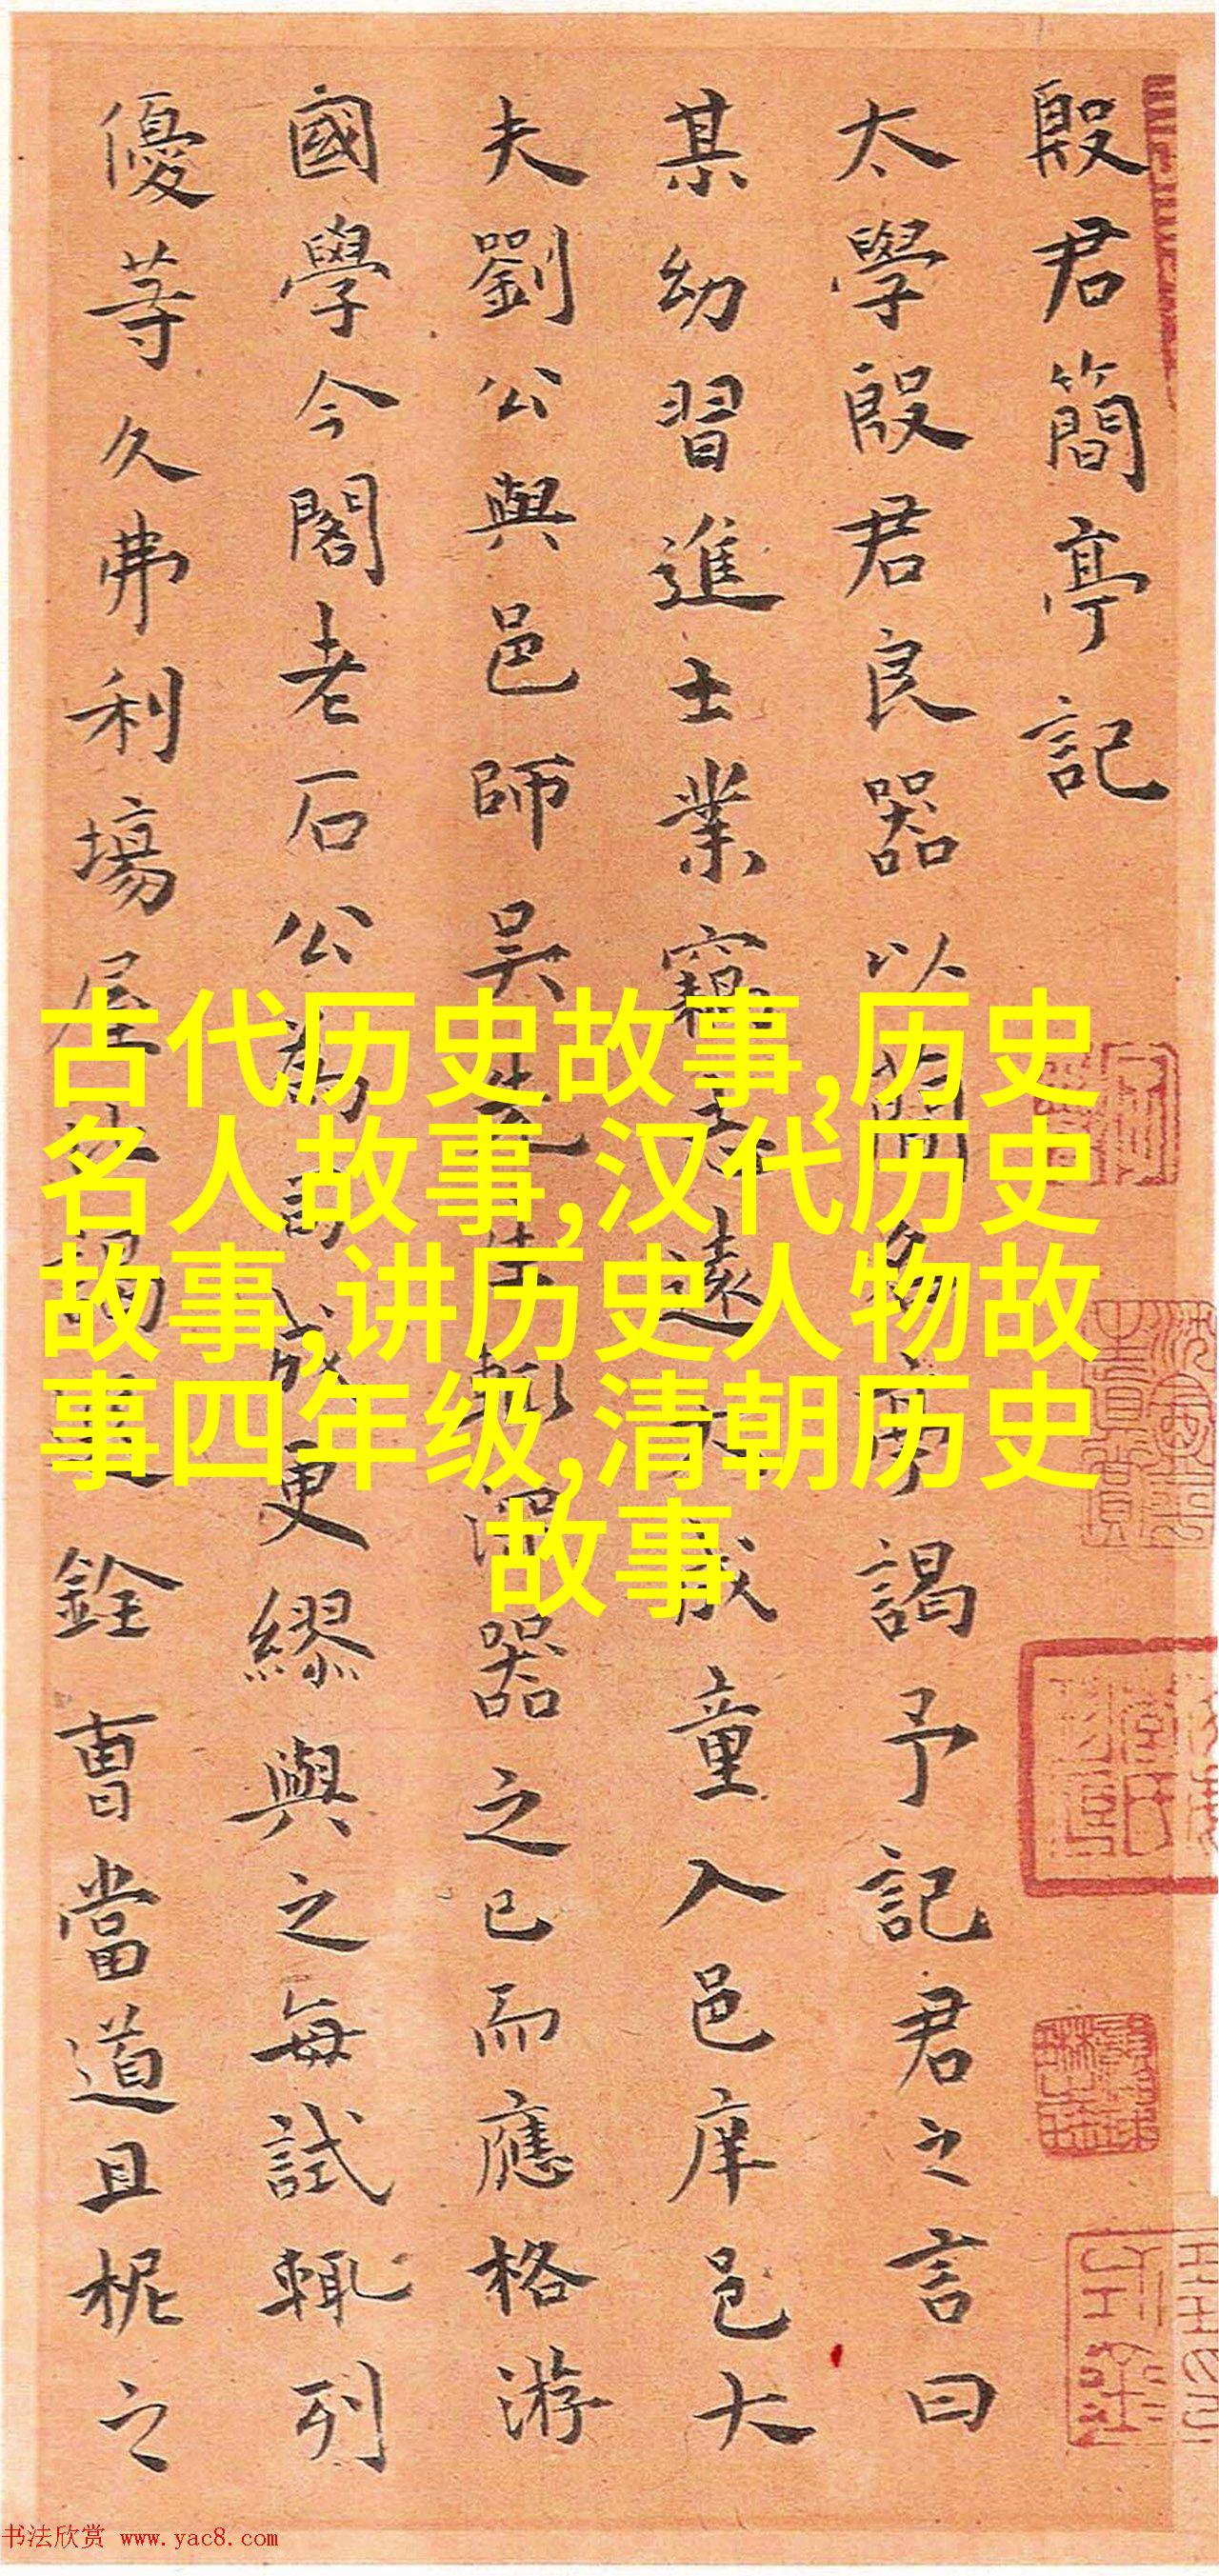 殷君簡亭記
太學殷君良器以簡名亭謁予記君之言曰
某幼習進士業竊 遠 成童入邑庠邑大
夫劉公與邑師吳 先生 深器之已而應格游
國學今閣老石公為 司成更繆與之每試輒列
優等久弗利場屋 銓曹當道且柅之
古代历史故事,历史
名人故事,汉代历史
故事,讲历史人物故
事四年级,清朝历史
故事
书法欣赏 www.yac8.com